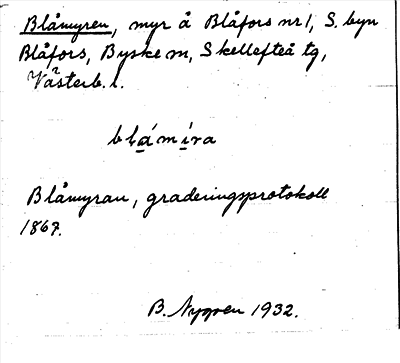 Blåmyren, myr å Blåfors nr 1, S. byn
Blåfors, Byske sn, Skellefteå tg,
Västerb. l.
blámíra
Blåmyran, graderingsprotokoll
1867.
B. Nygren 1932.